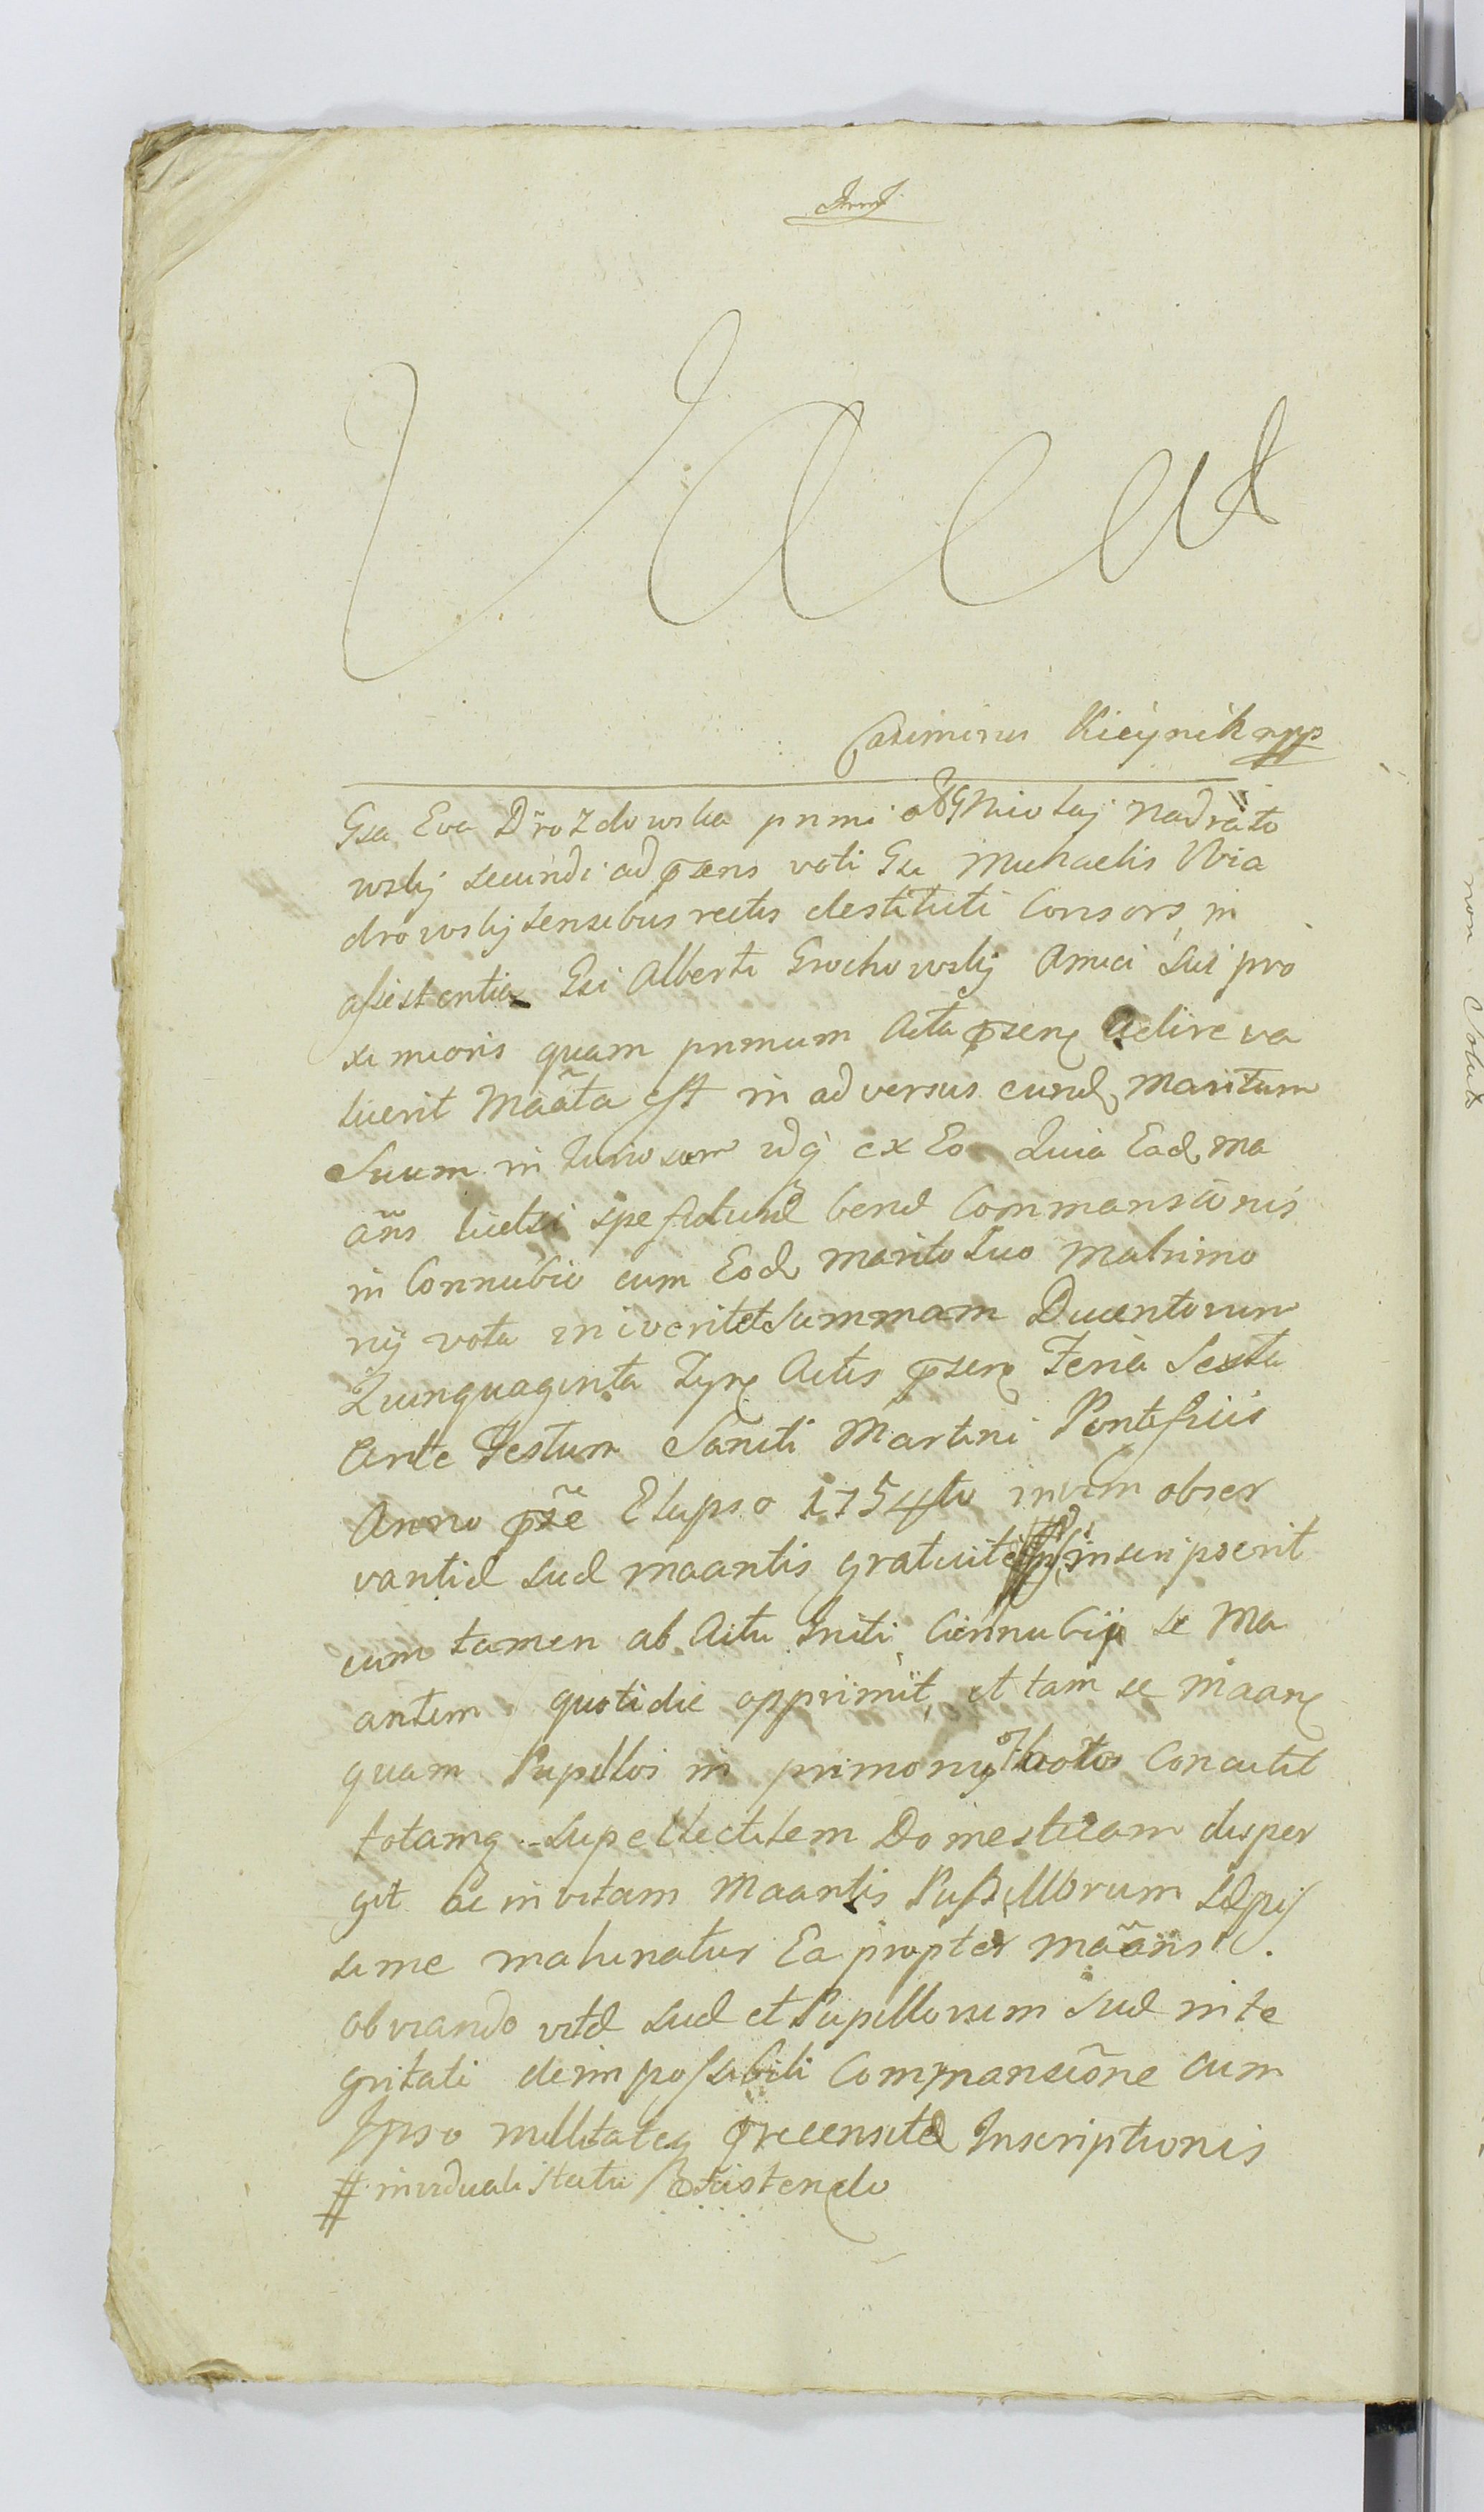 Vacat
Casimirus Kicÿnik mpp
Gsa Eva Drozdowska primi Nicolaj Nadrato
wskj secundi ad psens voti Gsi Michaelis Wia
drowskj sensibus rectis destituti Consors, in
assistentia Gsi Alberti Grochowskj Amici sui pro
ximioris quam primum Acta psens Adire va
luerit Maãta est in adversus eund maritum
Suum in Juriosum idq ex Eo Quia Ead ma
añs licetsi spe futuræ benæ Commansionis
in Connubio cum Eod marito suo Matrimo
nij vota iniverit et Summam Ducentorum
Quinquaginta Tynf Actis psens Feria Sexta
Ante Festum Sancti Martini Pontificis
Anno psẽ Elapso 1754to invim obser
vantiæ suæ maantis gratuite inscripserit
cum tamen ab Actu Initi Connubij se Ma
antem quotidie opprimit, et tam se maans
quam Pupillos in primo voto Concutit
totamq supellectilem Domesticam disper
git ac in vitam Maantis Pupillorum sæpis
sime machinatur Ea propter maãns
obviando vitæ suæ et Pupillorum suæ inte
gritati de impossibili Commansiõne cum
Ipso nullitateq precensitæ Inscriptionis
# in viduali statu Existendo
non Solut